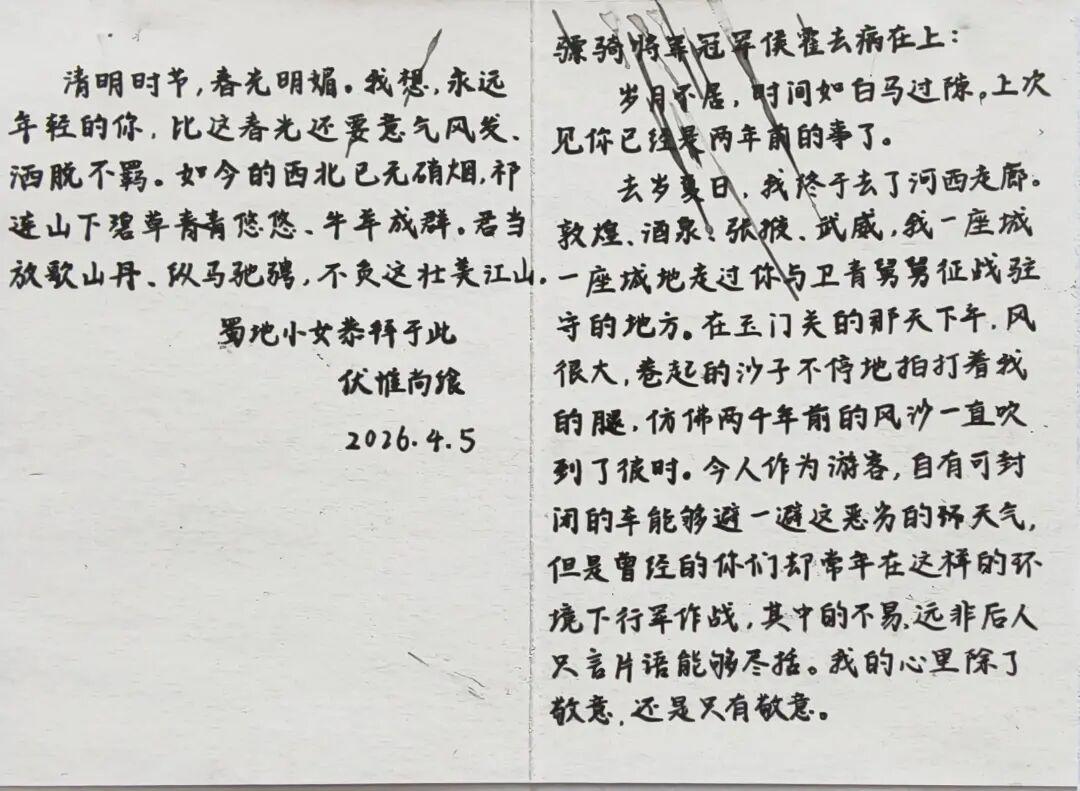 骠骑将军冠军侯霍去病在上：
岁月不居，时间如白马过隙。上次
见你已经是两年前的事了。
去岁夏日，我终于去了河西走廊。
敦煌、酒泉、张掖、武威，我一座城
一座城地走过你与卫青舅舅征战驻
守的地方。在玉门关的那天下午，风
很大，卷起的沙子不停地拍打着我
的腿，仿佛两千年前的风沙一直吹
到了彼时。今人作为游客，自有可封
闭的车能够避一避这恶劣的坏天气，
但是曾经的你们却常年在这样的环
境下行军作战，其中的不易，远非后人
只言片语能够尽括。我的心里除了
敬意，还是只有敬意。
清明时节，春光明媚。我想，永远
年轻的你，比这春光还要意气风发、
洒脱不羁。如今的西北已无硝烟，祁
连山下碧草青青悠悠、牛羊成群。君当
放歌山丹、纵马驰骋，不负这壮美江山。
蜀地小女恭拜于此
伏惟尚飨
2026.4.5